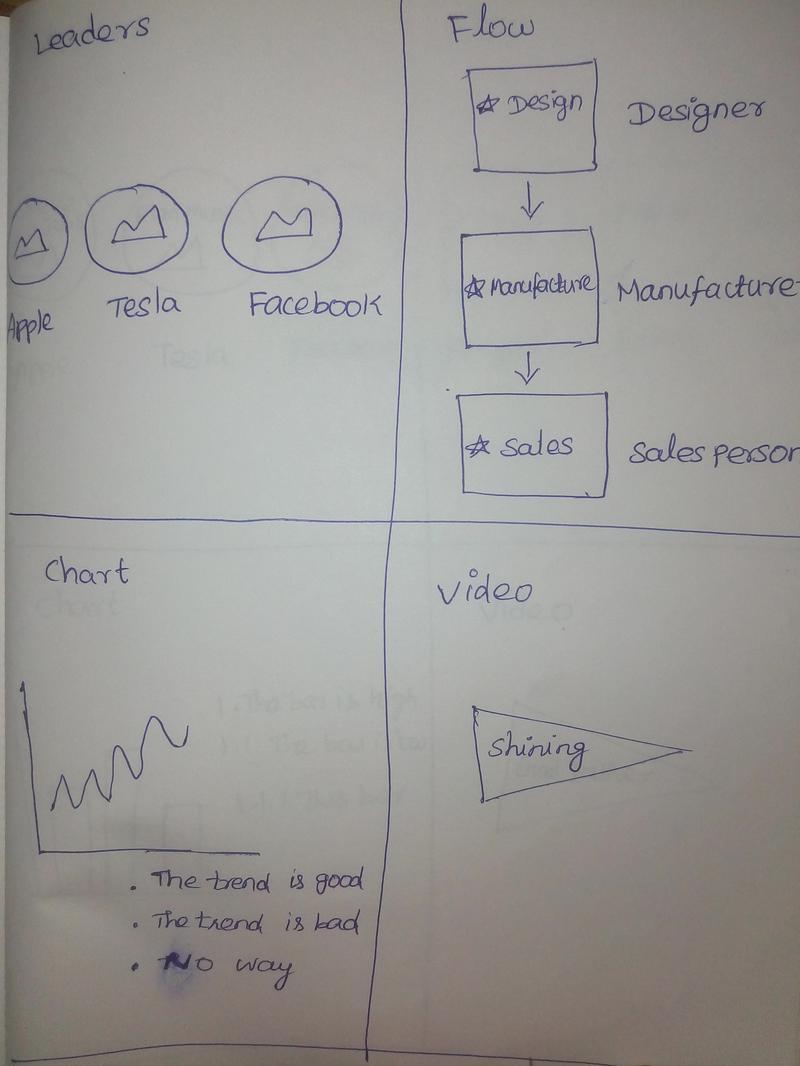 Leaders
Apple
Tesla
Facebook
Flow
Design
Designer
Manufacture
Manufacture
Sales
Sales person
Chart
. The trend is good
. The trend is bad
. No way
Video
Shining